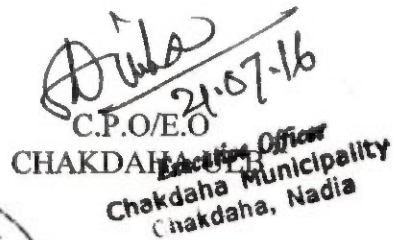 21.07.16
C.P.O/E.O
CHAKDAHA ULB
Executive Officer
Chakdaha Municipality
Chakdaha, Nadia